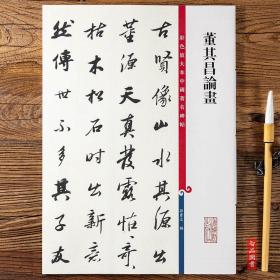 董其昌論畫
彩色放大本中國著名碑帖
古賢像山水其源出
董源天真發露恠奇
枯木松石時出新意
然傳世不多其子友